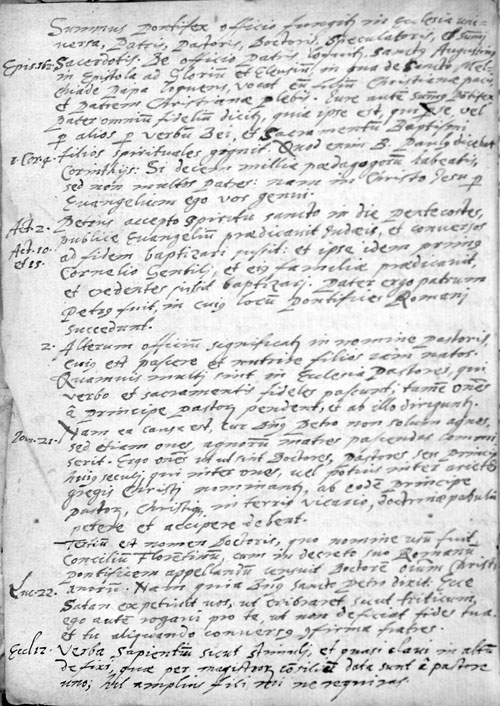 Summus Pontifex officio fungitur in Ecclesia uni-
versa, Patris, Pastoris, Doctoris, Speculatoris, et summi
Epis. 162. Sacerdotis. De officio Patris loquitur Sanctus Augustinus
in Epistola ad Glorium et Eleusium, in qua de Sancto Mel-
chiade Papa loquens, vocat eum filium Christianae pacis
et patrem Christianae plebis. Iure autem summus Pontifex
pater omnium fidelium dicitur, quia ipse est, qui vel
per alios per verbum Dei, et Sacramentum Baptismi
1 Cor. 4. filios spirituales gignit. Quod enim B. Paulus dicebat
Corinthijs: Si decem millia paedagogorum habeatis,
sed non multos patres: nam in Christo Iesu per
Evangelium ego vos genui.
Act. 2. Petrus accepto Spiritu sancto in die pentecostes,
publice Evangelium praedicavit Iudaeis, et conversos
Act. 10. ad fidem baptizari iussit: et ipse idem primus
et 15. Cornelio Gentili, et eius familiae praedicavit,
et credentes iussit baptizari. Pater ergo patrum
Petrus fuit, in cuius locum Pontifices Romani
succedunt.
2. Alterum officium significatur in nomine pastoris,
cuius est pascere et nutrire filios iam natos.
Quamvis multi sint in Ecclesia Pastores, qui
verbo et sacramentis fideles pascunt; tamen omnes
a principe pastorum pendent, et ab illo diriguntur.
Ioan. 21. Nam ea causa est, cur Dnus Petro non solum agnos,
sed etiam oves agnorum matres pascendas commi
serit. Ergo omnes ut ut sint Doctores, Pastores seu principes
huius seculi, qui inter oves, vel potius inter arietes
gregis Christi nominantur, ab eodem principe
pastorum, Christi in terris vicario, doctrinae pabulum
petere et accipere debent.
Tertium est nomen Doctoris, quo nomine usum fuit
Concilium Florentinum, cum in decreto suo Romanum
Pontificem appellandum censuit Doctorem omnium Christi
anorum. Nam quia Dnus sancto Petro dixit: Ecce
Luc. 22. Satan expetivit vos, ut cribraret sicut triticum,
ego autem rogavi pro te, ut non deficiat fides tua:
et tu aliquando conversus confirma fratres.
Eccl 12. Verba Sapientium sicut stimuli, et quasi clavi in altum
defixi, quae per magistrorum consilium data sunt a pastore
uno; his amplius fili mi ne requiras.